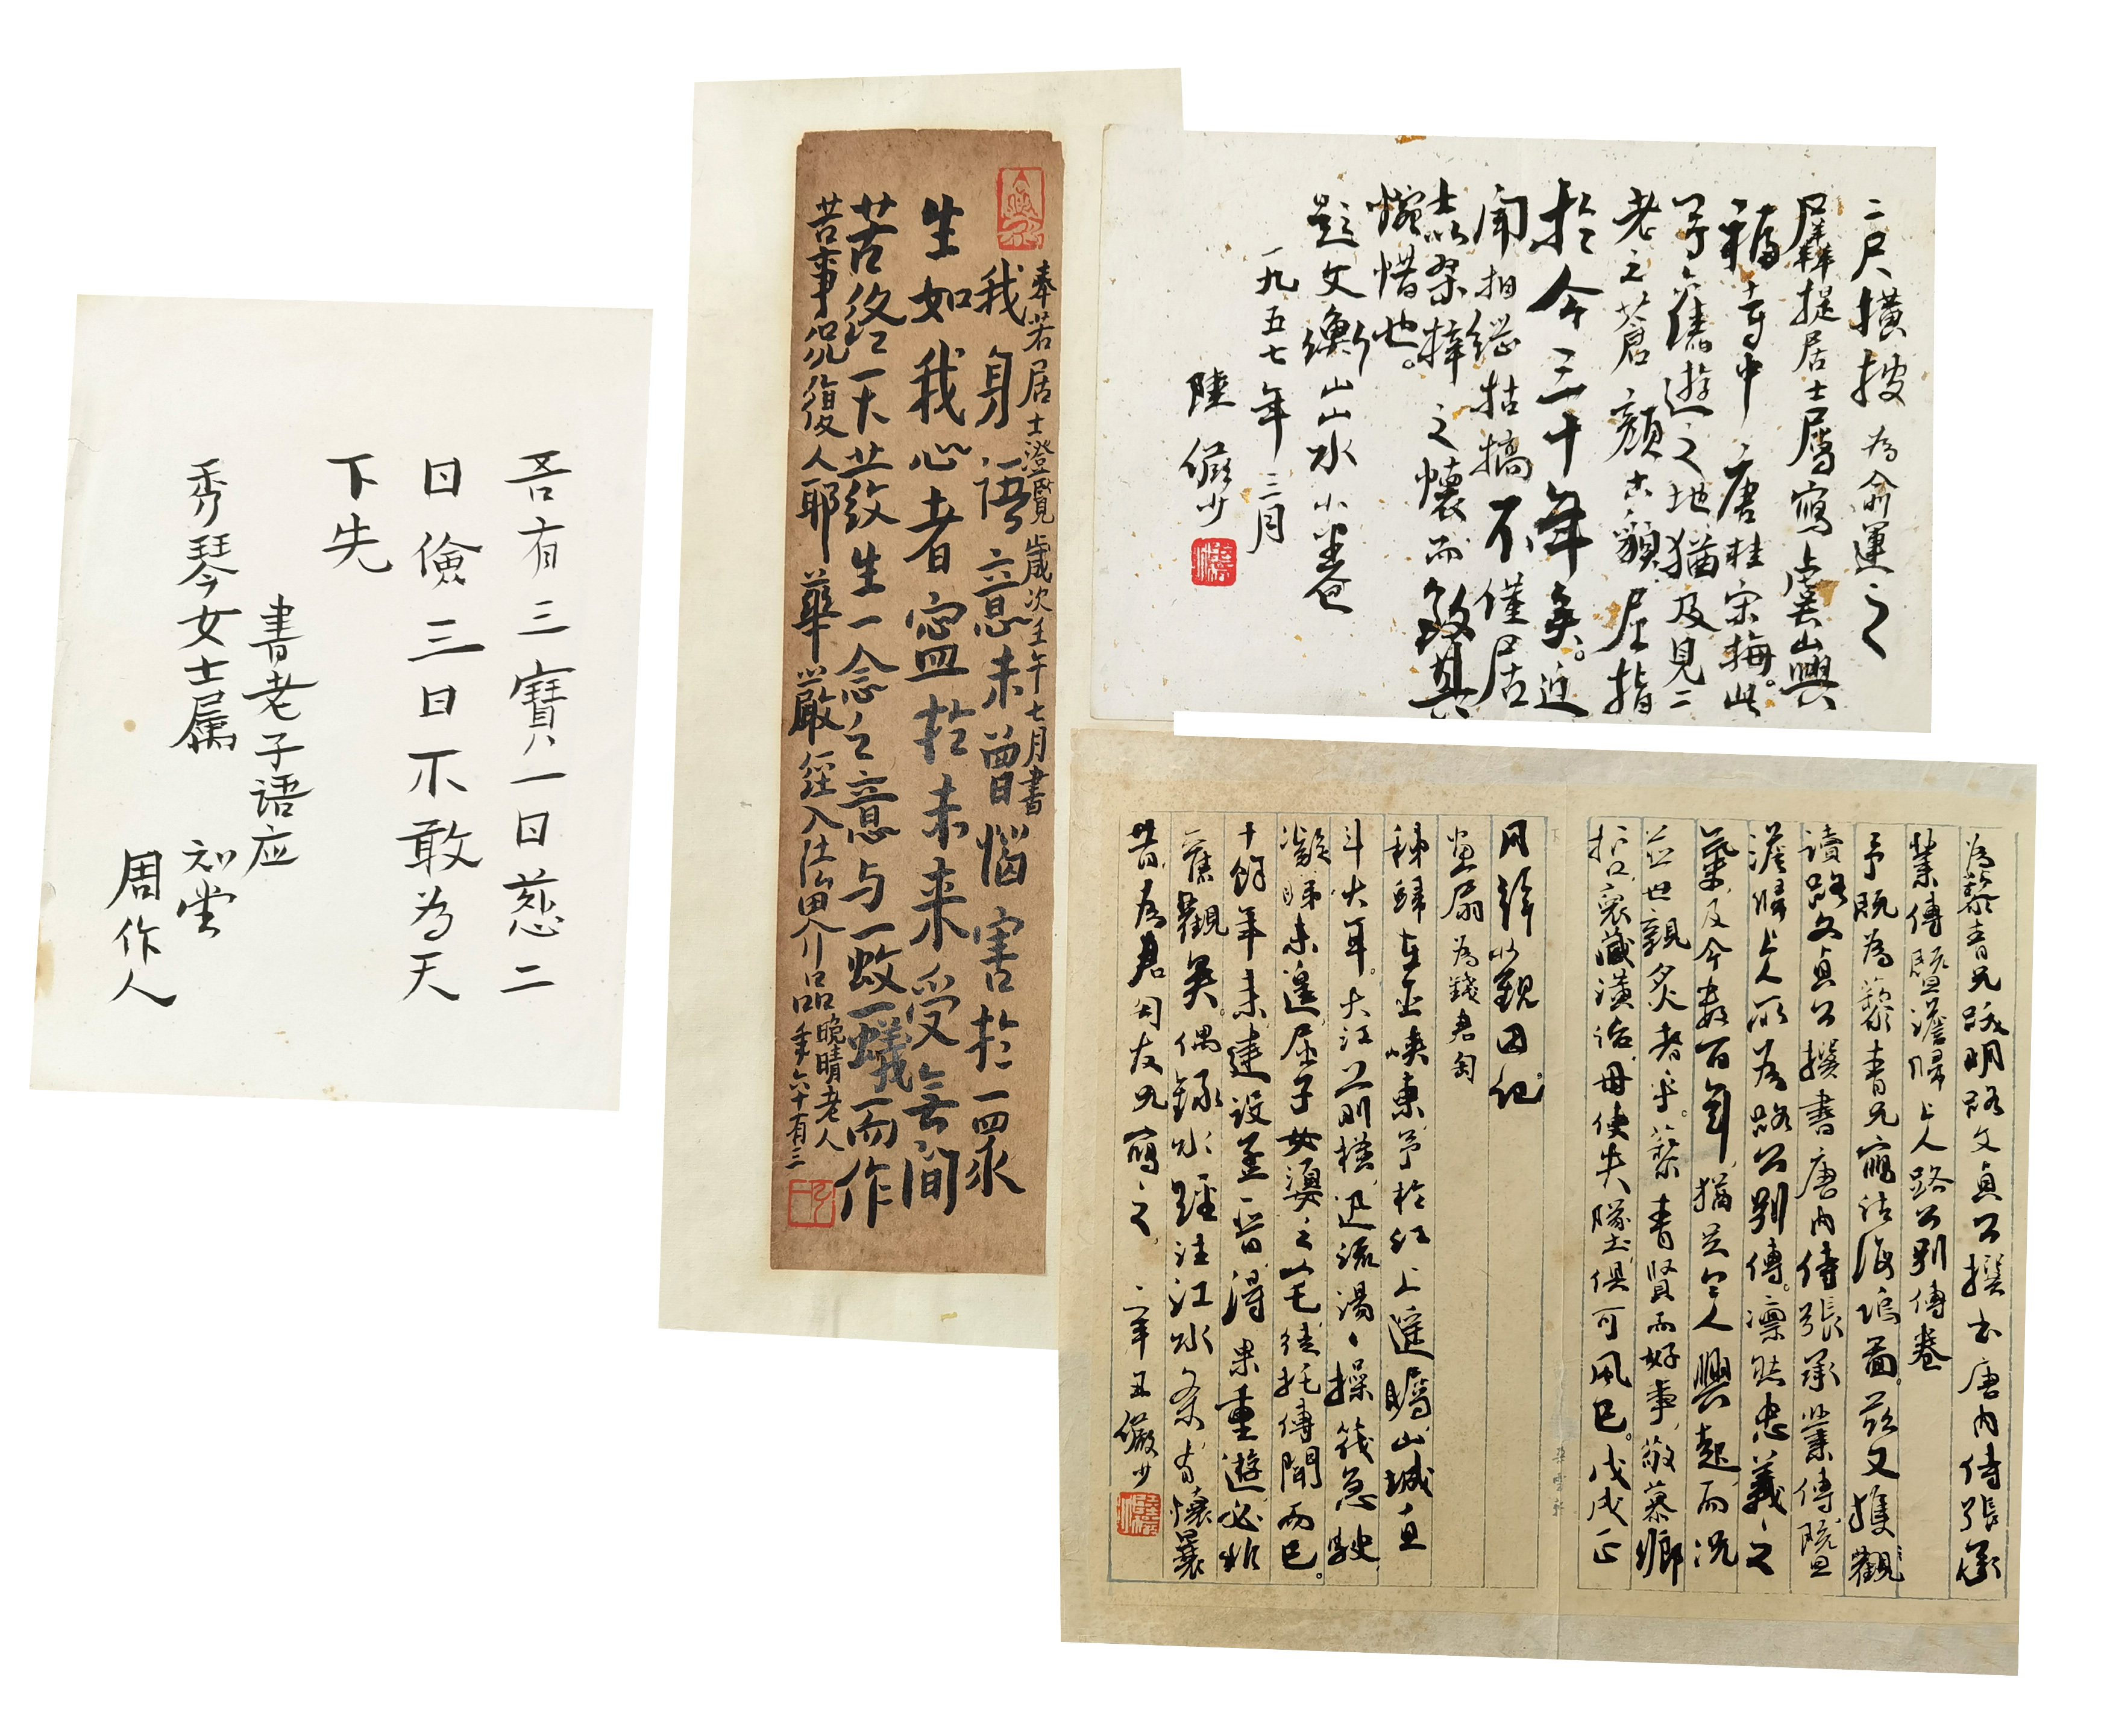 吾有三寶一曰慈二
曰儉三曰不敢為天
下先
書老子语应
秀琴女士属
知堂
周作人
奉若居士澄覽歲次壬午七月書
我身语意未曾惱害於一四眾
生如我心者寧於未来受无间
苦终不共彼生一念之意与一蚊一蟻而作
苦事况復人耶華嚴經入法界品
晚晴老人
年六十有三
二尺橫披為俞運之
犀提居士屬寫虞山興
福寺中唐桂宋梅。此
予舊遊之地猶及見二
老之蒼顏古貌屈指
於今三十年矣。近
聞相繼枯槁不僅居
士以祭梓之懷而致其
惋惜也。
題文衡山山水小卷
一九五七年三月
陸儼少
為藜青兄跋明路文貞公撰书唐内侍張承
業傳暨澹歸上人路公别傳卷
予既為藜青兄寫沽海塢圖。兹又獲觀
讀路文貞公撰書唐内侍張承業傳暨
澹歸上人所為路公别傳。凛然忠義之
氣。及今數百年猶足令人興起而况
並世親炙者乎。藜青賢而好事敬慕鄉
招口裒藏潢治毋使失墜俱可風已。戊戌正
月觀因記。
画扇為錢君匋
秭歸在巫峡東予於江上遥矚山城直
斗大耳。大江上則横迅流湯、操筏急駛
凝睇未遑屈子女嬃之宅徒托傳聞而已。
十餘年来建設盖一昔得果重遊必非
舊觀矣。偶録水經注江水条有懷曩
昔為君匋友兄寫之
辛丑儼少